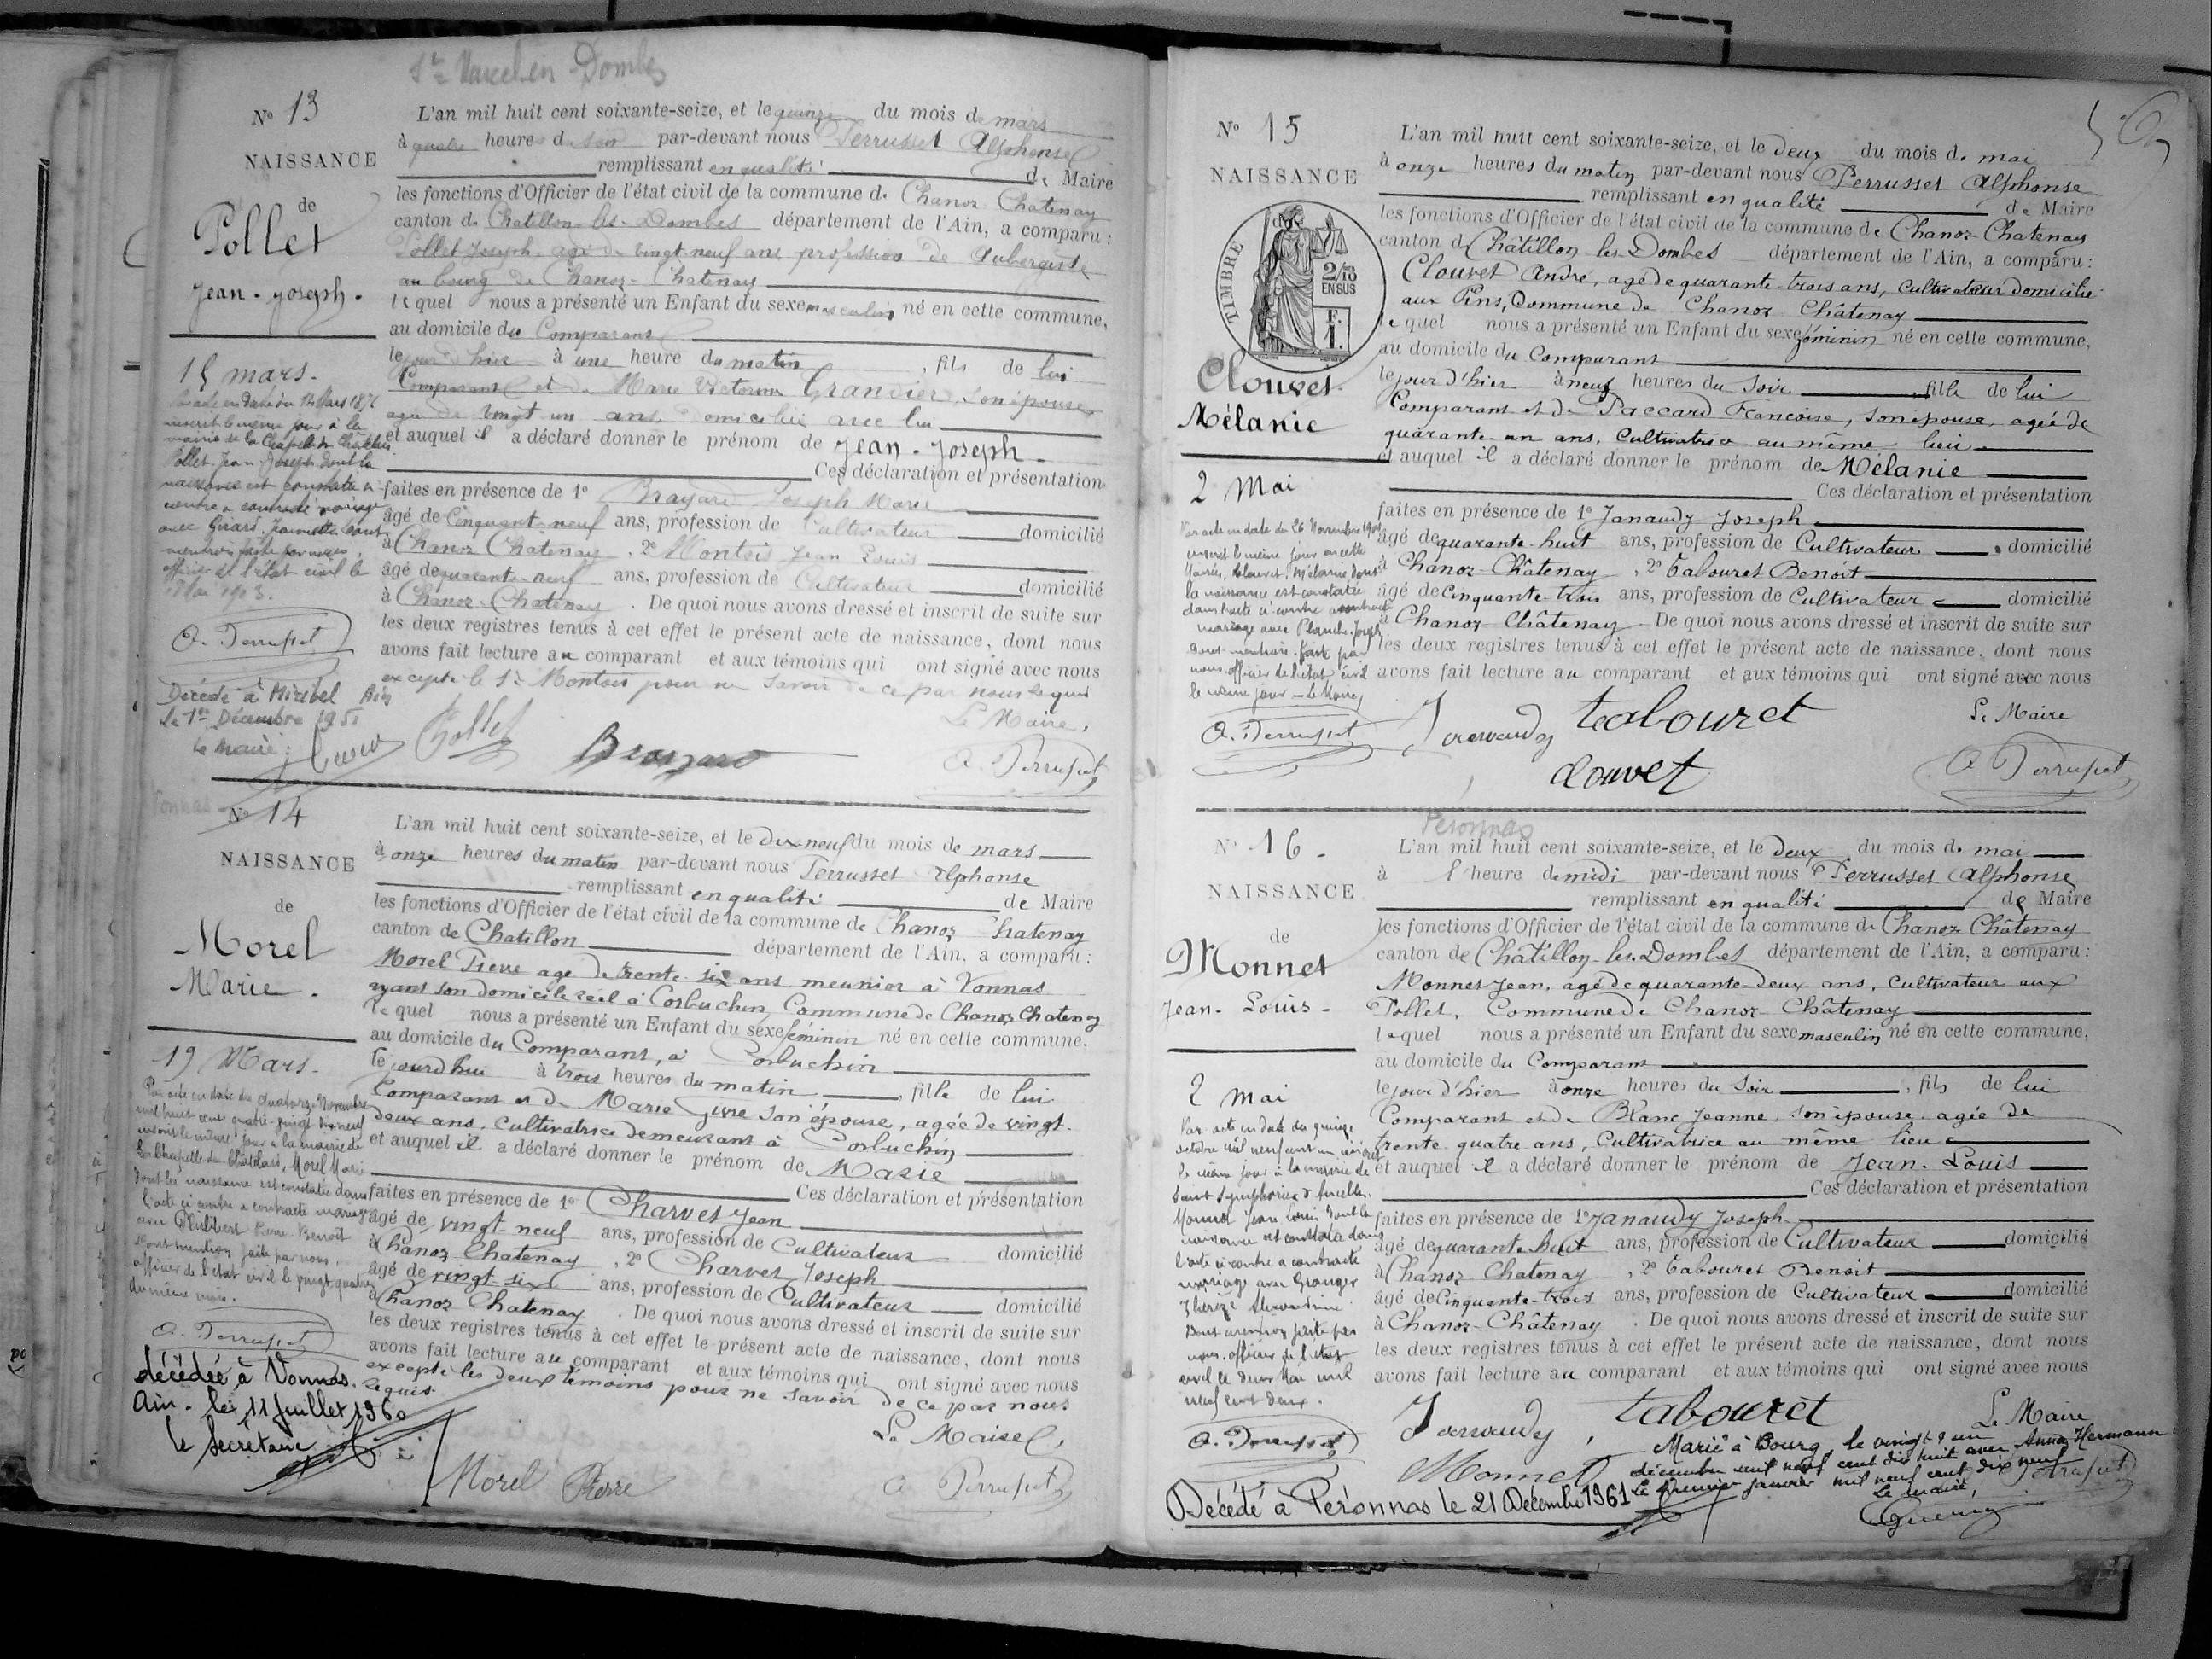 Ste Marcel en Dombes
N° 13
NAISSANCE
de
Pollet
Jean-Joseph.
15 mars.
mairie de la Chapelle du Châtelard
Pollet Jean Joseph dont la
naissance est constatée ci
contre a contracté mariage
avec Girard Jeannette dont
mention faite par nous,
officier de l'état civil le
1903.
A. Perrusset
Décédé à Miribel Ain
le 1er Décembre 195
le maire :
L'an mil huit cent soixante-seize, et le quinze du mois de mars
à quatre heures du soir par-devant nous Perrusset Alphonse
remplissant en qualité de Maire
les fonctions d'Officier de l'état civil de la commune de Chanoz Chatenay
canton de Chatillon-les-Dombes département de l'Ain, a comparu :
Pollet Joseph agé de vingt neuf ans profession de Aubergiste
au bourg de Chanoz-Chatenay
lequel nous a présenté un Enfant du sexe masculin né en cette commune,
au domicile du Comparant
le jour d'hier à une heure du matin, fils de lui
Comparant et de Marie Victorine Grandier, son épouse,
agée de vingt un ans domiciliée avec lui
et auquel il a déclaré donner le prénom de Jean-Joseph-
Ces déclaration et présentation
faites en présence de 1° Brayard Joseph Marie
âgé de Cinquant-neuf ans, profession de Cultivateur domicilié
à Chanoz Chatenay, 2° Montois Jean Louis
âgé de quarante-neuf ans, profession de Cultivateur domicilié
à Chanoz-Chatenay. De quoi nous avons dressé et inscrit de suite sur
les deux registres tenus à cet effet le présent acte de naissance, dont nous
avons fait lecture au comparant et aux témoins qui ont signé avec nous
excepté le Sr Montois pour ne savoir de ce par nous requis
Le Maire,
Pollet Brayard A. Perrusset
Vonnas
N° 14
NAISSANCE
de
Morel
Marie.
19 Mars.
Par acte en date du quatorze Novembre
mil huit cent quatre-vingt dix neuf
inscrit le même jour à la mairie de
La Chapelle du Châtelard, Morel Marie
dont la naissance est constatée dans
l'acte ci contre a contracté mariage
avec Pierre Benoît
dont mention faite par nous,
officier de l'état civil le vingt quatre
du même mois.
A. Perrusset
décédée à Vonnas
Ain. le 11 Juillet 1960
le Secrétaire
L'an mil huit cent soixante-seize, et le Dix-neuf du mois de mars
à onze heures du matin par-devant nous Perrusset Alphonse
remplissant en qualité de Maire
les fonctions d'Officier de l'état civil de la commune de Chanoz Chatenay
canton de Chatillon département de l'Ain, a comparu :
Morel Pierre age de trente-six ans meunier à Vonnas
ayant son domicile réel à Corbuchin, Commune de Chanoz Chatenay
lequel nous a présenté un Enfant du sexe féminin né en cette commune,
au domicile du Comparant, à Corbuchin
le jourd'hui à trois heures du matin, fille de lui
Comparant et de Marie son épouse, agée de vingt-
deux ans, cultivatrice demeurant à Corbuchin
et auquel il a déclaré donner le prénom de Marie
Ces déclaration et présentation
faites en présence de 1° Charvet Jean
âgé de vingt neuf ans, profession de Cultivateur domicilié
à Chanoz Chatenay, 2° Charvet Joseph
âgé de vingt-six ans, profession de Cultivateur domicilié
à Chanoz Chatenay. De quoi nous avons dressé et inscrit de suite sur
les deux registres tenus à cet effet le présent acte de naissance, dont nous
avons fait lecture au comparant et aux témoins qui ont signé avec nous
excepté les deux témoins pour ne savoir de ce par nous
requis.
Le Maire,
Morel Pierre A. Perrusset
N° 15
NAISSANCE
de
TIMBRE
2/10 EN SUS
F. 1.
Clouvet
Mélanie
2 Mai
Par acte en date du 26 Novembre 1901
inscrit le même jour en cette
Mairie, Clouvet, Mélanie dont
la naissance est constatée
dans l'acte ci-contre a contracté
mariage avec Planche Joseph
dont mention faite par
nous officier de l'état civil
le même jour - Le Maire,
A. Perrusset
L'an mil huit cent soixante-seize, et le deux du mois de mai
à onze heures du matin par-devant nous Perrusset Alphonse
remplissant en qualité de Maire
les fonctions d'Officier de l'état civil de la commune de Chanoz-Chatenay
canton de Châtillon-les-Dombes département de l'Ain, a comparu :
Clouvet André, agé de quarante-trois ans, cultivateur domicilié
aux Pins, Commune de Chanoz Châtenay
lequel nous a présenté un Enfant du sexe féminin né en cette commune,
au domicile du Comparant
le jour d'hier à neuf heures du soir, fille de lui
Comparant et de Paccard Francoise, son épouse, agée de
quarante-un ans, Cultivatrice au même lieu
et auquel il a déclaré donner le prénom de Mélanie
Ces déclaration et présentation
faites en présence de 1° Janaudy Joseph
âgé de quarante-huit ans, profession de Cultivateur domicilié
à Chanoz-Châtenay, 2° Tabouret Benoît
âgé de Cinquante-trois ans, profession de Cultivateur domicilié
à Chanoz-Châtenay. De quoi nous avons dressé et inscrit de suite sur
les deux registres tenus à cet effet le présent acte de naissance, dont nous
avons fait lecture au comparant et aux témoins qui ont signé avec nous
Janaudy tabouret Le Maire
clouvet A Perrusset
Péronnas
N° 16-
NAISSANCE
de
Monnet
Jean-Louis-
2 mai
Par acte en date du quinze
octobre mil neuf cent un inscrit
le même jour à la mairie de
Saint Symphorien d'Ancelles,
Monnet Jean Louis dont la
naissance est constatée dans
l'acte ci-contre a contracté
mariage avec Granger
Thérèze Alexandrine
Dont mention faite par
nous officier de l'état
civil le deux Mai mil
neuf cent deux.
A. Perrusset
L'an mil huit cent soixante-seize, et le deux du mois de mai
à l'heure de midi par-devant nous Perrusset Alphonse
remplissant en qualité de Maire
les fonctions d'Officier de l'état civil de la commune de Chanoz Châtenay
canton de Châtillon-les-Dombes département de l'Ain, a comparu :
Monnet Jean, agé de quarante-deux ans, Cultivateur aux
Pollet, Commune de Chanoz-Châtenay
lequel nous a présenté un Enfant du sexe masculin né en cette commune,
au domicile du Comparant
le jour d'hier à onze heures du soir, fils de lui
Comparant et de Blanc Jeanne, son épouse, agée de
trente-quatre ans, Cultivatrice au même lieu
et auquel il a déclaré donner le prénom de Jean-Louis
Ces déclaration et présentation
faites en présence de 1° Janaudy Joseph
âgé de quarante-huit ans, profession de Cultivateur domicilié
à Chanoz-Chatenay, 2° Tabouret Benoît
âgé de Cinquante-trois ans, profession de Cultivateur domicilié
à Chanoz-Châtenay. De quoi nous avons dressé et inscrit de suite sur
les deux registres tenus à cet effet le présent acte de naissance, dont nous
avons fait lecture au comparant et aux témoins qui ont signé avec nous
Janaudy, tabouret Le Maire
Monnet A Perrusset
Marié à Bourg, le vingt & un
décembre mil neuf cent dix huit avec Anna Hermann
Le premier janvier mil neuf cent dix neuf
Le maire,
Décédé à Péronnas le 21 Décembre 1961